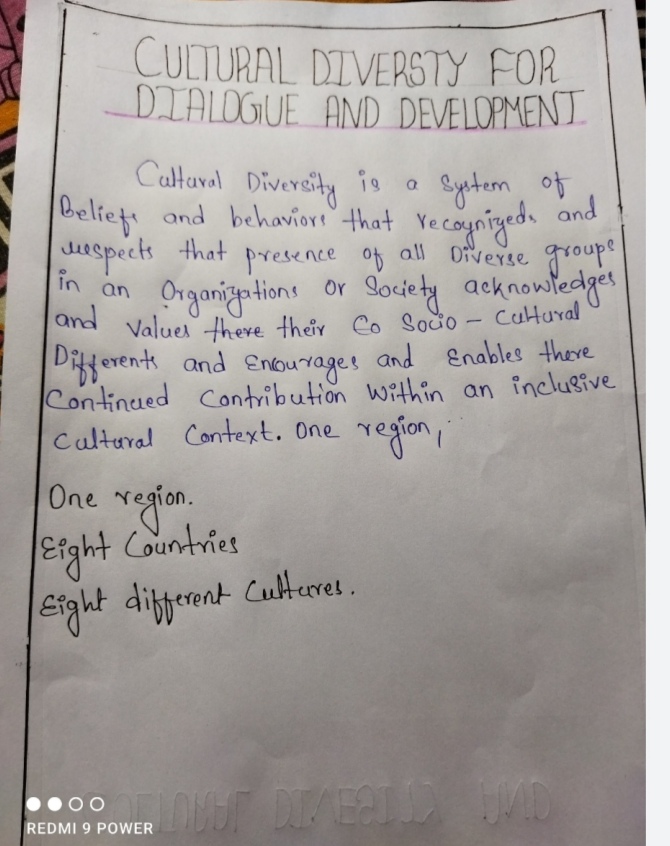 CULTURAL DIVERSTY FOR
DIALOGUE AND DEVELOPMENT
Cultural Diversity is a System of
Beliefs and behaviors that recognizeds and
respects that presence of all Diverse groups
in an Organizations or Society acknowledges
and Values there their Co Socio - Cultural
Differents and Encourages and Enables there
Continued Contribution Within an inclusive
Cultural Context. One region,
One region.
Eight Countries
Eight different Cultures.
REDMI 9 POWER